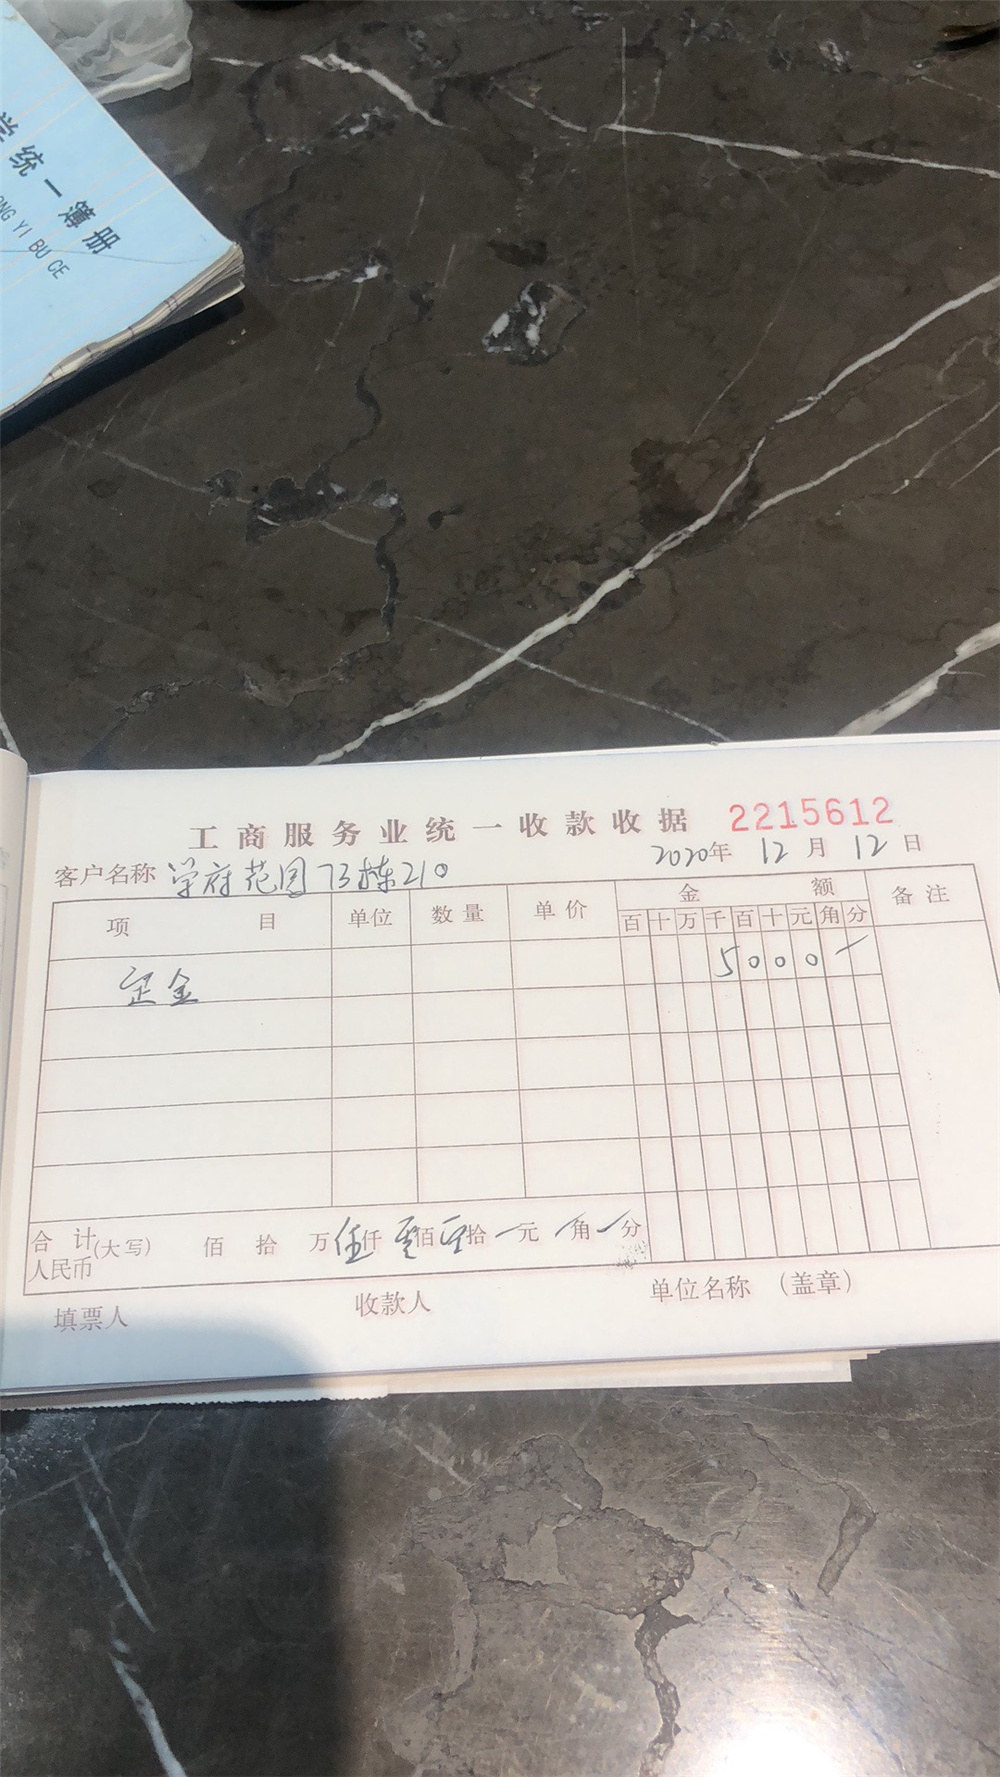 学统一簿册
ONG YI BU CE
工商服务业统一收款收据 2215612
2020年 12月 12日
客户名称 学府花园73栋210
项目 单位 数量 单价 金额 备注
百 十 万 千 百 十 元 角 分
定金 5000-
合计人民币(大写) 佰 拾 万 伍仟 零佰 零拾 元 角 分
填票人 收款人 单位名称 (盖章)